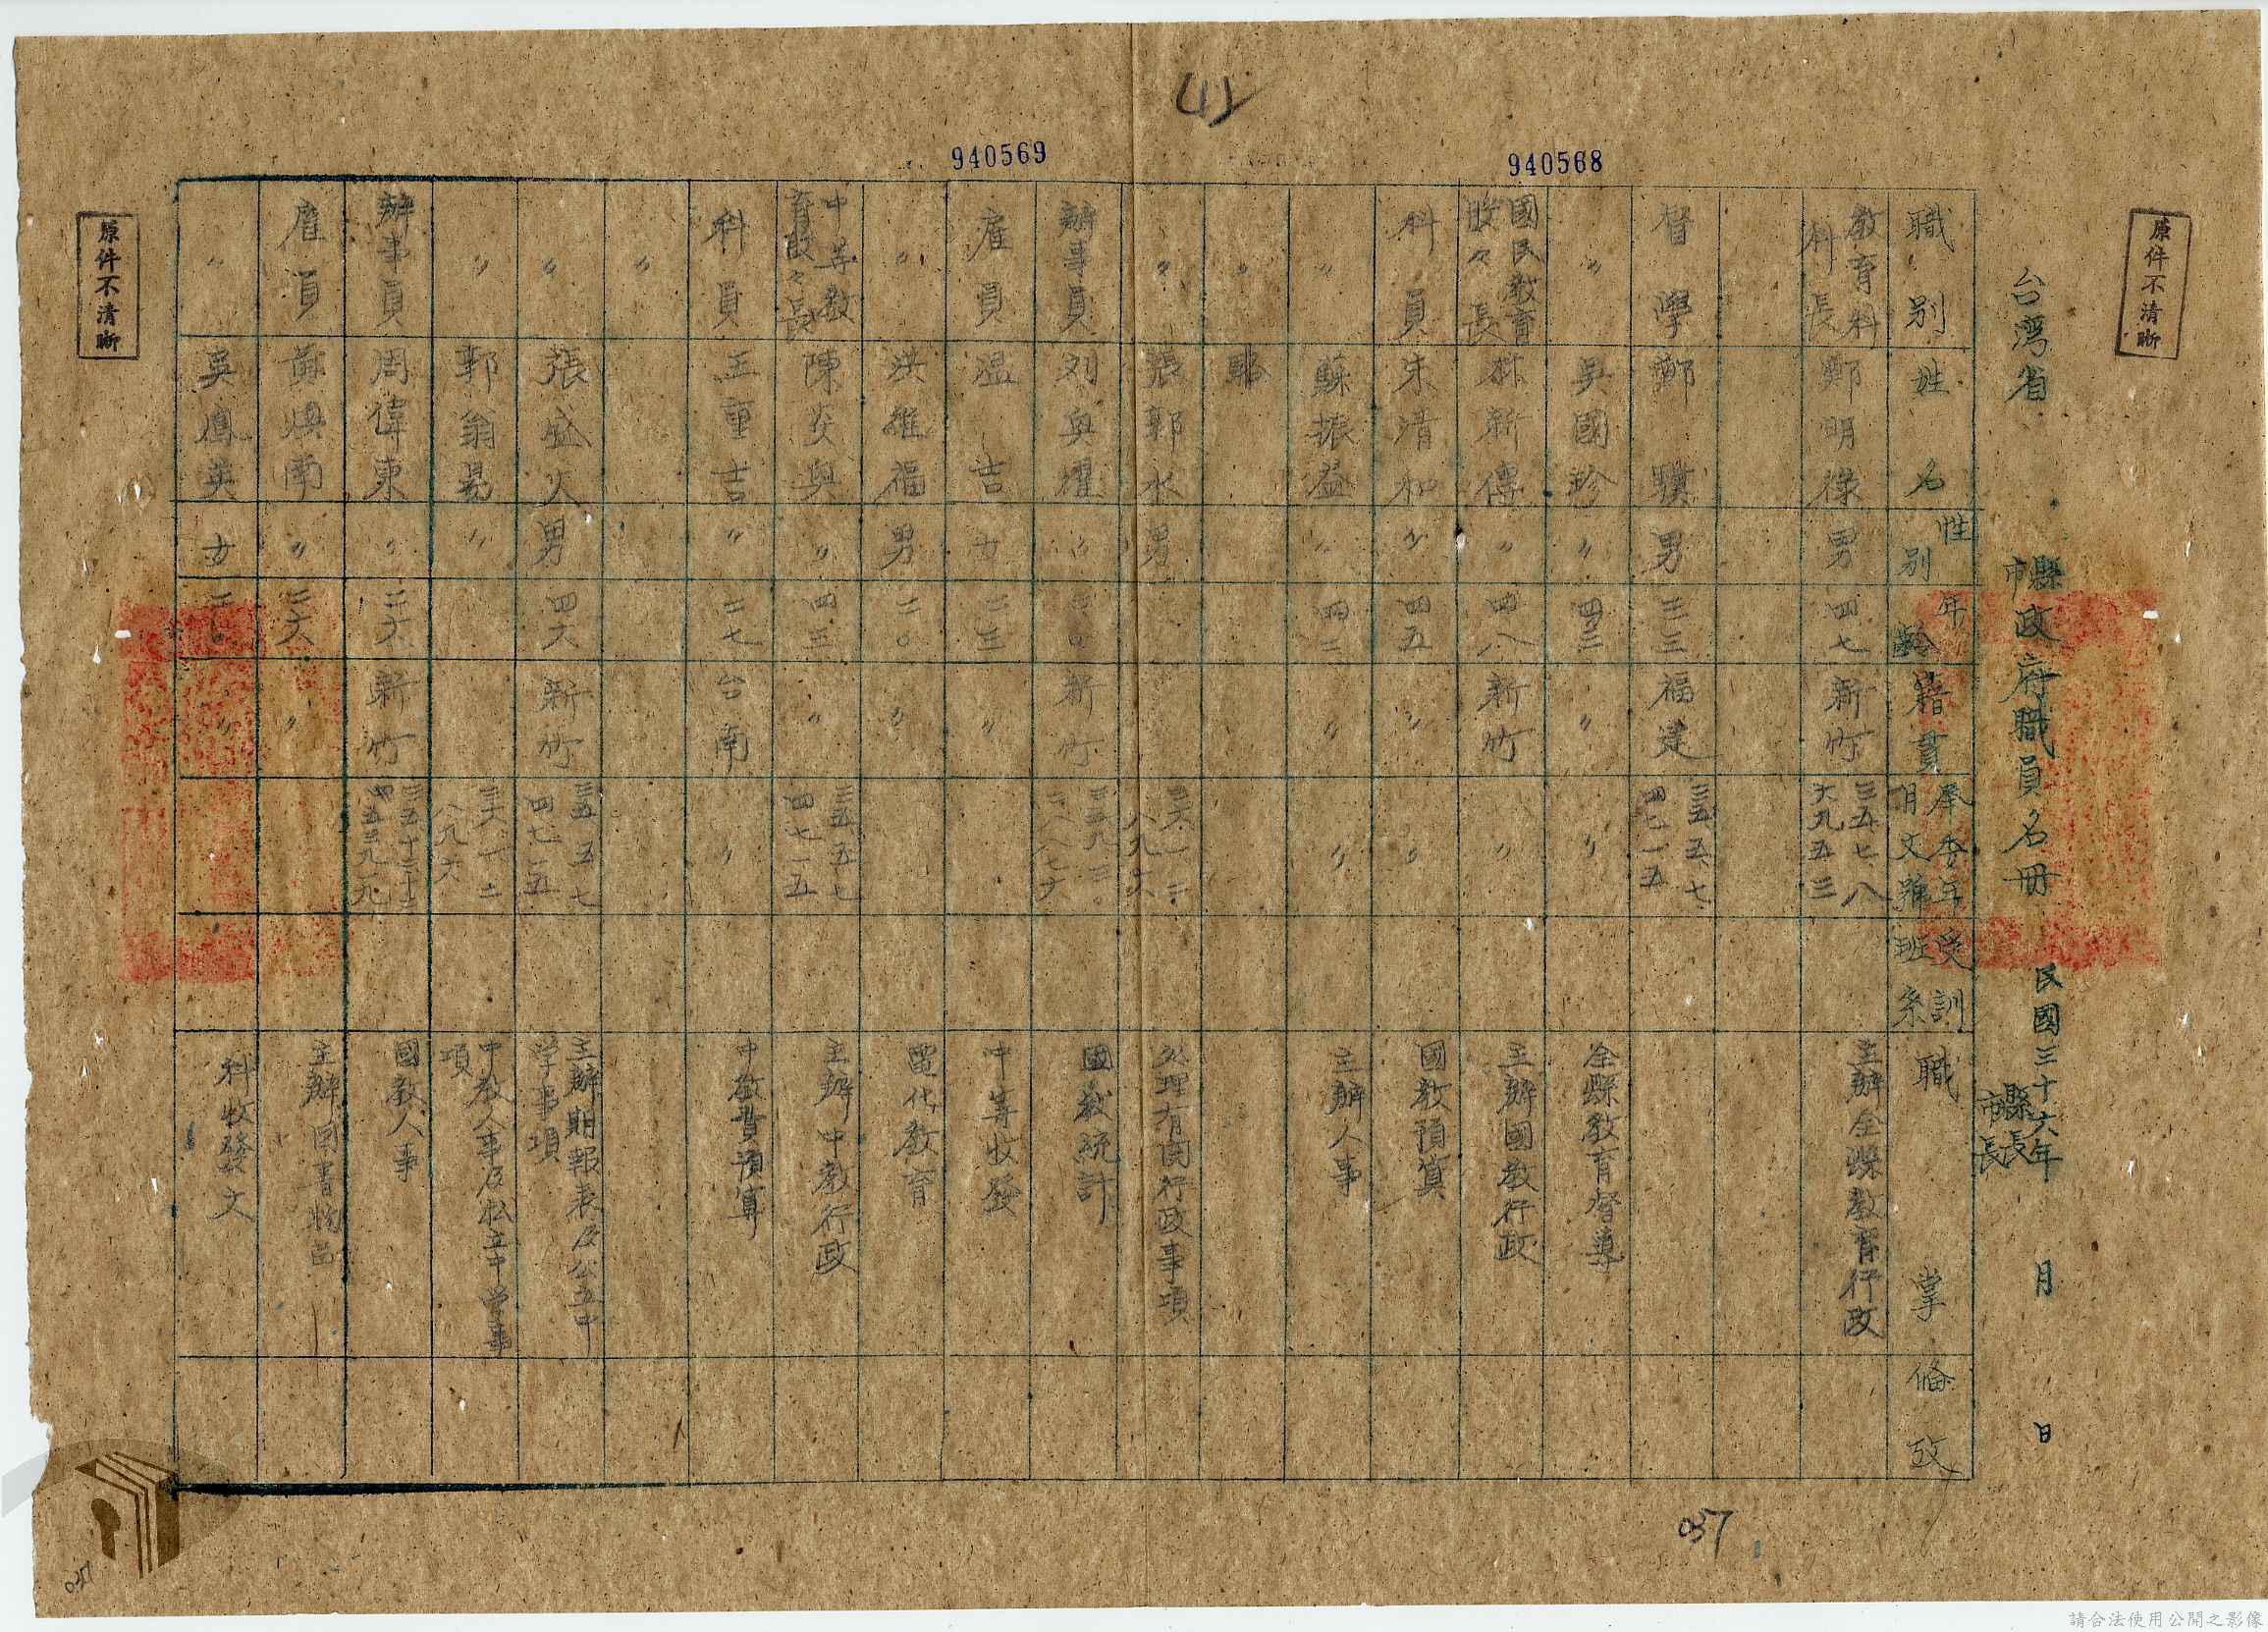 41
940568
940569
原件不清晰
原件不清晰
台湾省 縣市政府職員名冊 民國三十六年 月 日
縣長
市長
職別 姓名 性別 年齡 籍貫 奉委年月文號 受訓班系 職掌 備攷
教育科科長 鄭明祿 男 四七 新竹 三五、七、八 六九五三 主辦全縣教育行政
督學 鄭騏 男 三三 福建 三五、五、七 四七一五
〃 吳國珍 〃 四二 〃 〃 全縣教育督導
國民教育股々長 林新傳 〃 四八 新竹 〃 主辦國教行政
科員 朱清和 〃 四五 〃 〃 國教預算
〃 蘇振益 〃 四二 〃 主辦人事
〃
〃 張郭水 男 三六、一、二 八九六 处理有関行政事項
辦事員 刘與耀 〃 三〇 新竹 三五九三〇 二八八七六 國教統計
雇員 温吉 女 二三 〃 中等收發
〃 洪維福 男 二〇 〃 電化教育
中等教育股々長 陳炎興 〃 四三 〃 三五、五、七 四七一五 主辦中教行政
科員 王重吉 〃 二七 台南 〃 中教費預算
〃
〃 張盛火 男 四六 新竹 三五、五、七 四七一五 主辦期報表及公立中学事項
〃 郭翁易 〃 三六、一、二 八九六 中教人事及私立中學事項
辦事員 周偉東 〃 二六 新竹 三五十二十二 四五三九一九 國教人事
雇員 黄煥南 〃 二六 〃 主辦図書物品
〃 吳鳳英 女 二〇 〃 科收發文
037
037
請合法使用公開之影像